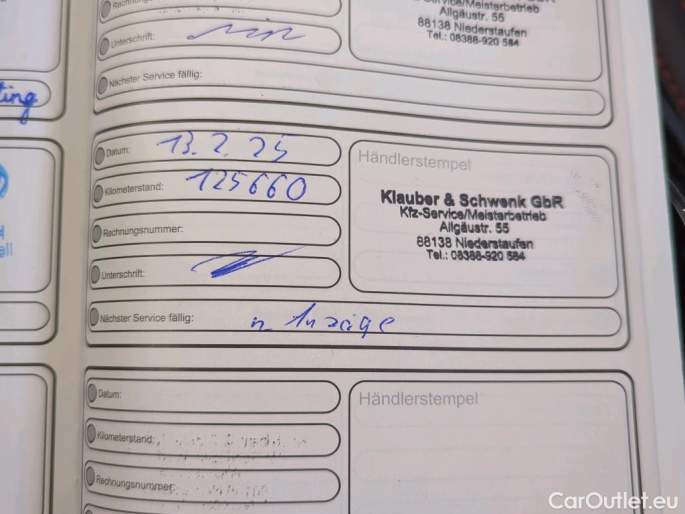 Allgäustr. 55
88138 Niederstaufen
Tel.: 08388-920 584
Unterschrift:
Nächster Service fällig:
ting
Datum: 13.2.25
Händlerstempel
Kilometerstand: 125660
Klauber & Schwenk GbR
Kfz-Service/Meisterbetrieb
Allgäustr. 55
88138 Niederstaufen
Tel.: 08388-920 584
Rechnungsnummer:
Unterschrift:
Nächster Service fällig: n. Anzeige
Datum:
Händlerstempel
Kilometerstand:
Rechnungsnummer:
CarOutlet.eu